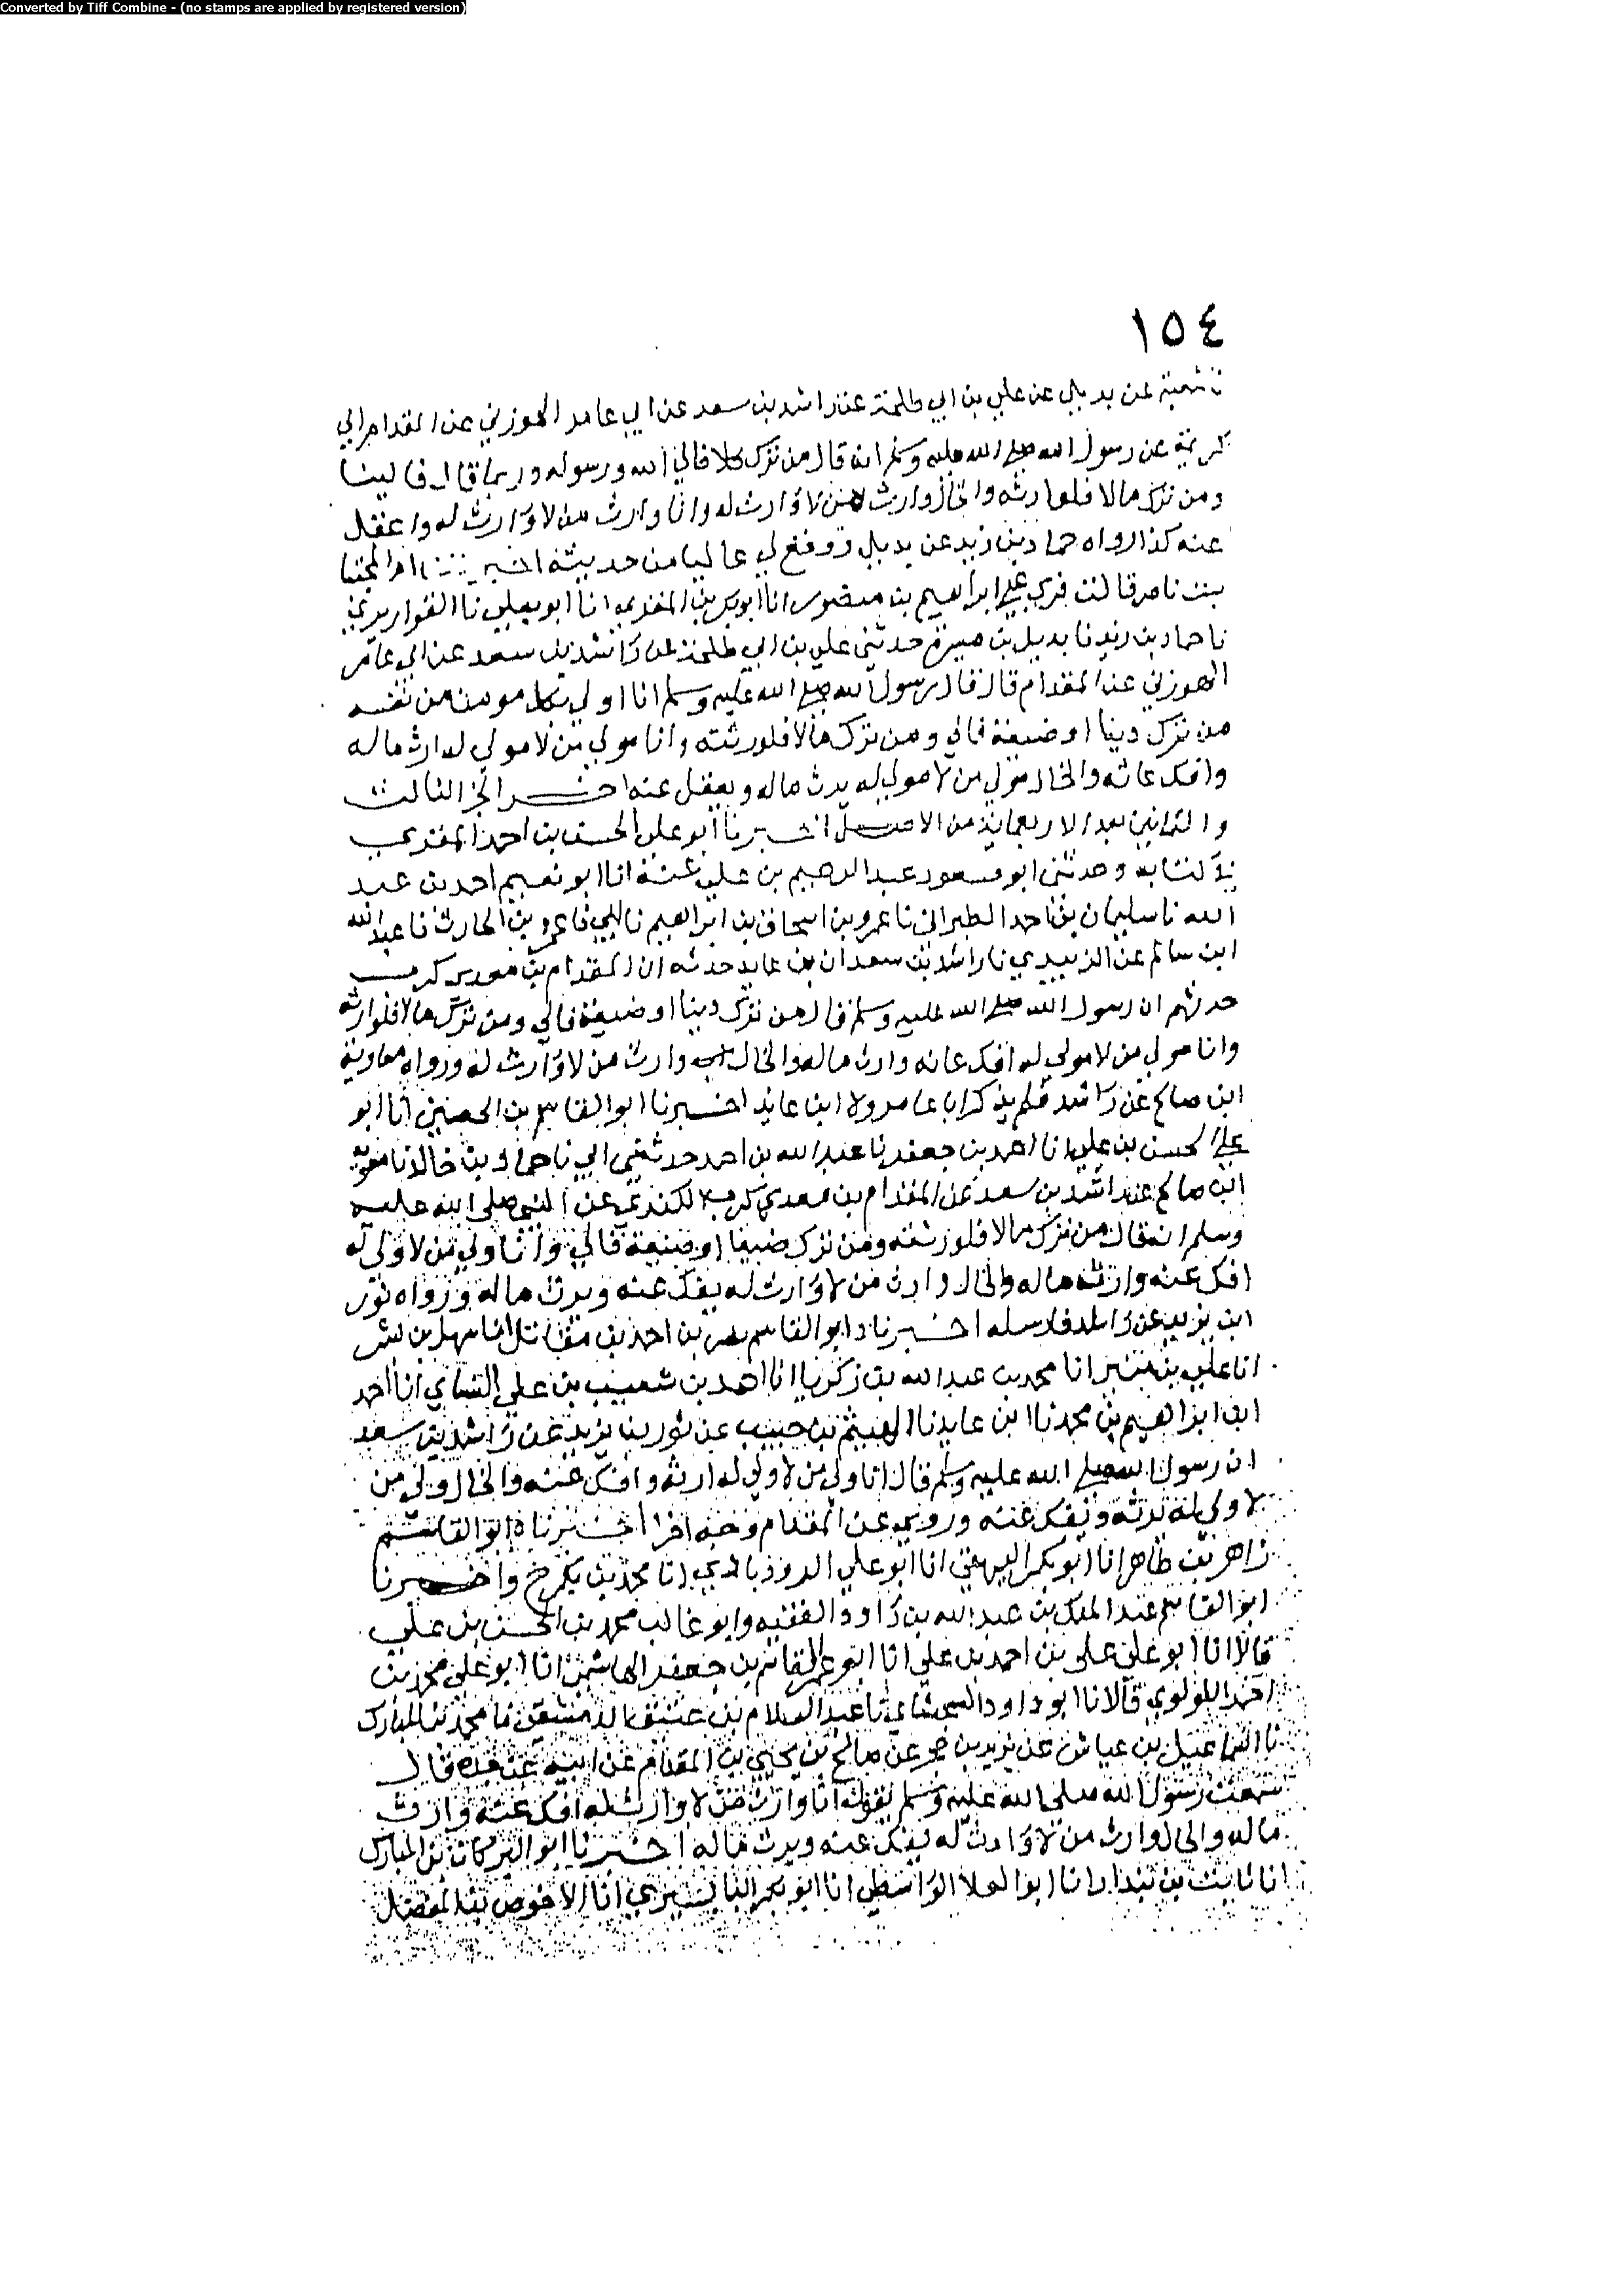 Converted by Tiff Combine - (no stamps are applied by registered version)
١٥٤
نا شعبة عن بديل عن علي بن ابي طلحة عن راشد بن سعد عن ابي عامر الهوزني عن المقدام ابي
كريمة عن رسول الله صلى الله عليه وسلم انه قال من ترك كلا فالي الله ورسوله وربما قال فالينا
ومن ترك مالا فلوارثه والخال وارث من لا وارث له وانا وارث من لا وارث له واعقل
عنه كذا رواه حماد بن زيد عن بديل ووقع لي عاليا من حديثه اخبرتنا ام المجتبا
بنت ناصر قالت قري علي ابراهيم بن منصور انا ابو بكر بن المقري انا ابو يعلي نا القواريري
نا حماد بن زيد نا بديل بن ميسرة حدثني علي بن ابي طلحة عن راشد بن سعد عن ابي عامر
الهوزني عن المقدام قال قال رسول الله صلى الله عليه وسلم انا اولي بكل مومن من نفسه
من ترك دينا او ضيعة فالي ومن ترك مالا فلورثته وانا مولي من لا مولي له ارث ماله
وافك عانه والخال مولي من لا مولي له يرث ماله ويعقل عنه اخر الجز الثالث
والثمانين بعد الاربعماية من الاصل اخبرنا ابو علي الحسن بن احمد المقري
في كتابه وحدثني ابو مسعود عبد الرحيم بن علي عنه انا ابو نعيم احمد بن عبد
الله نا سليمان بن احمد الطبراني نا عمرو بن اسحاق بن ابراهيم نا ابي نا عمرو بن الحارث نا عبد الله
ابن سالم عن الزبيدي نا راشد بن سعد ان بن عايد حدثه ان المقدام بن معدي كرب
حدثهم ان رسول الله صلى الله عليه وسلم قال من ترك دينا او ضيعة فالي ومن ترك مالا فلوارثه
وانا مولي من لا مولي له افك عانه وارث ماله والخال وارث من لا وارث له ورواه معاوية
ابن صالح عن راشد فلم يذكر ابا عامر ولا ابن عايد اخبرنا ابو القاسم بن الحصين انا ابو
علي الحسن بن علي انا احمد بن جعفر نا عبد الله بن احمد حدثني ابي نا حماد بن خالد نا معوية
ابن صالح عن راشد بن سعد عن المقدام بن معدي كرب الكندي عن النبي صلى الله عليه
وسلم انه قال من ترك مالا فلورثته ومن ترك ضيعا او ضيعة فالي وانا ولي من لا ولي له
افك عنه وارث ماله والخال وارث من لا وارث له يفك عنه ويرث ماله ورواه ثور
ابن يزيد عن راشد فارسله اخبرنا ابو القاسم نصر بن احمد بن مقاتل انا سهل بن بشر
انا علي بن منير انا محمد بن عبد الله بن زكريا انا احمد بن شعيب بن علي النساي انا احمد
ابن ابراهيم بن محمد نا ابن عايد نا الهيثم بن حبيب عن ثور بن يزيد عن راشد بن سعد
ان رسول الله صلى الله عليه وسلم قال انا ولي من لا ولي له ارثه وافك عنه والخال ولي من
لا ولي له يرثه ويفك عنه وروي عن المقدام وجه اخر اخبرناه ابو القاسم
زاهر بن طاهر انا ابو بكر البيهقي انا ابو علي الروذباري انا محمد بن بكر ح واخبرنا
ابو القاسم عبد الملك بن عبد الله بن داود الفقيه وابو غالب محمد بن الحسن بن علي
قالا انا ابو علي علي بن احمد بن علي انا ابو عمر القاسم بن جعفر الهاشمي انا ابو علي محمد بن
احمد اللولوي قالا نا ابو داود السجستاني نا عبد السلام بن عتيق الدمشقي نا محمد بن المبارك
نا اسماعيل بن عياش عن يزيد بن حجر عن صالح بن يحيي بن المقدام عن ابيه عن جده قال
سمعت رسول الله صلى الله عليه وسلم يقول انا وارث من لا وارث له افك عنه وارث
ماله والخال وارث من لا وارث له يفك عنه ويرث ماله اخبرنا ابو البركات بن المبارك
انا ثابت بن بندار انا ابو العلا الواسطي انا ابو بكر البابسيري انا الاحوص بن المفضل